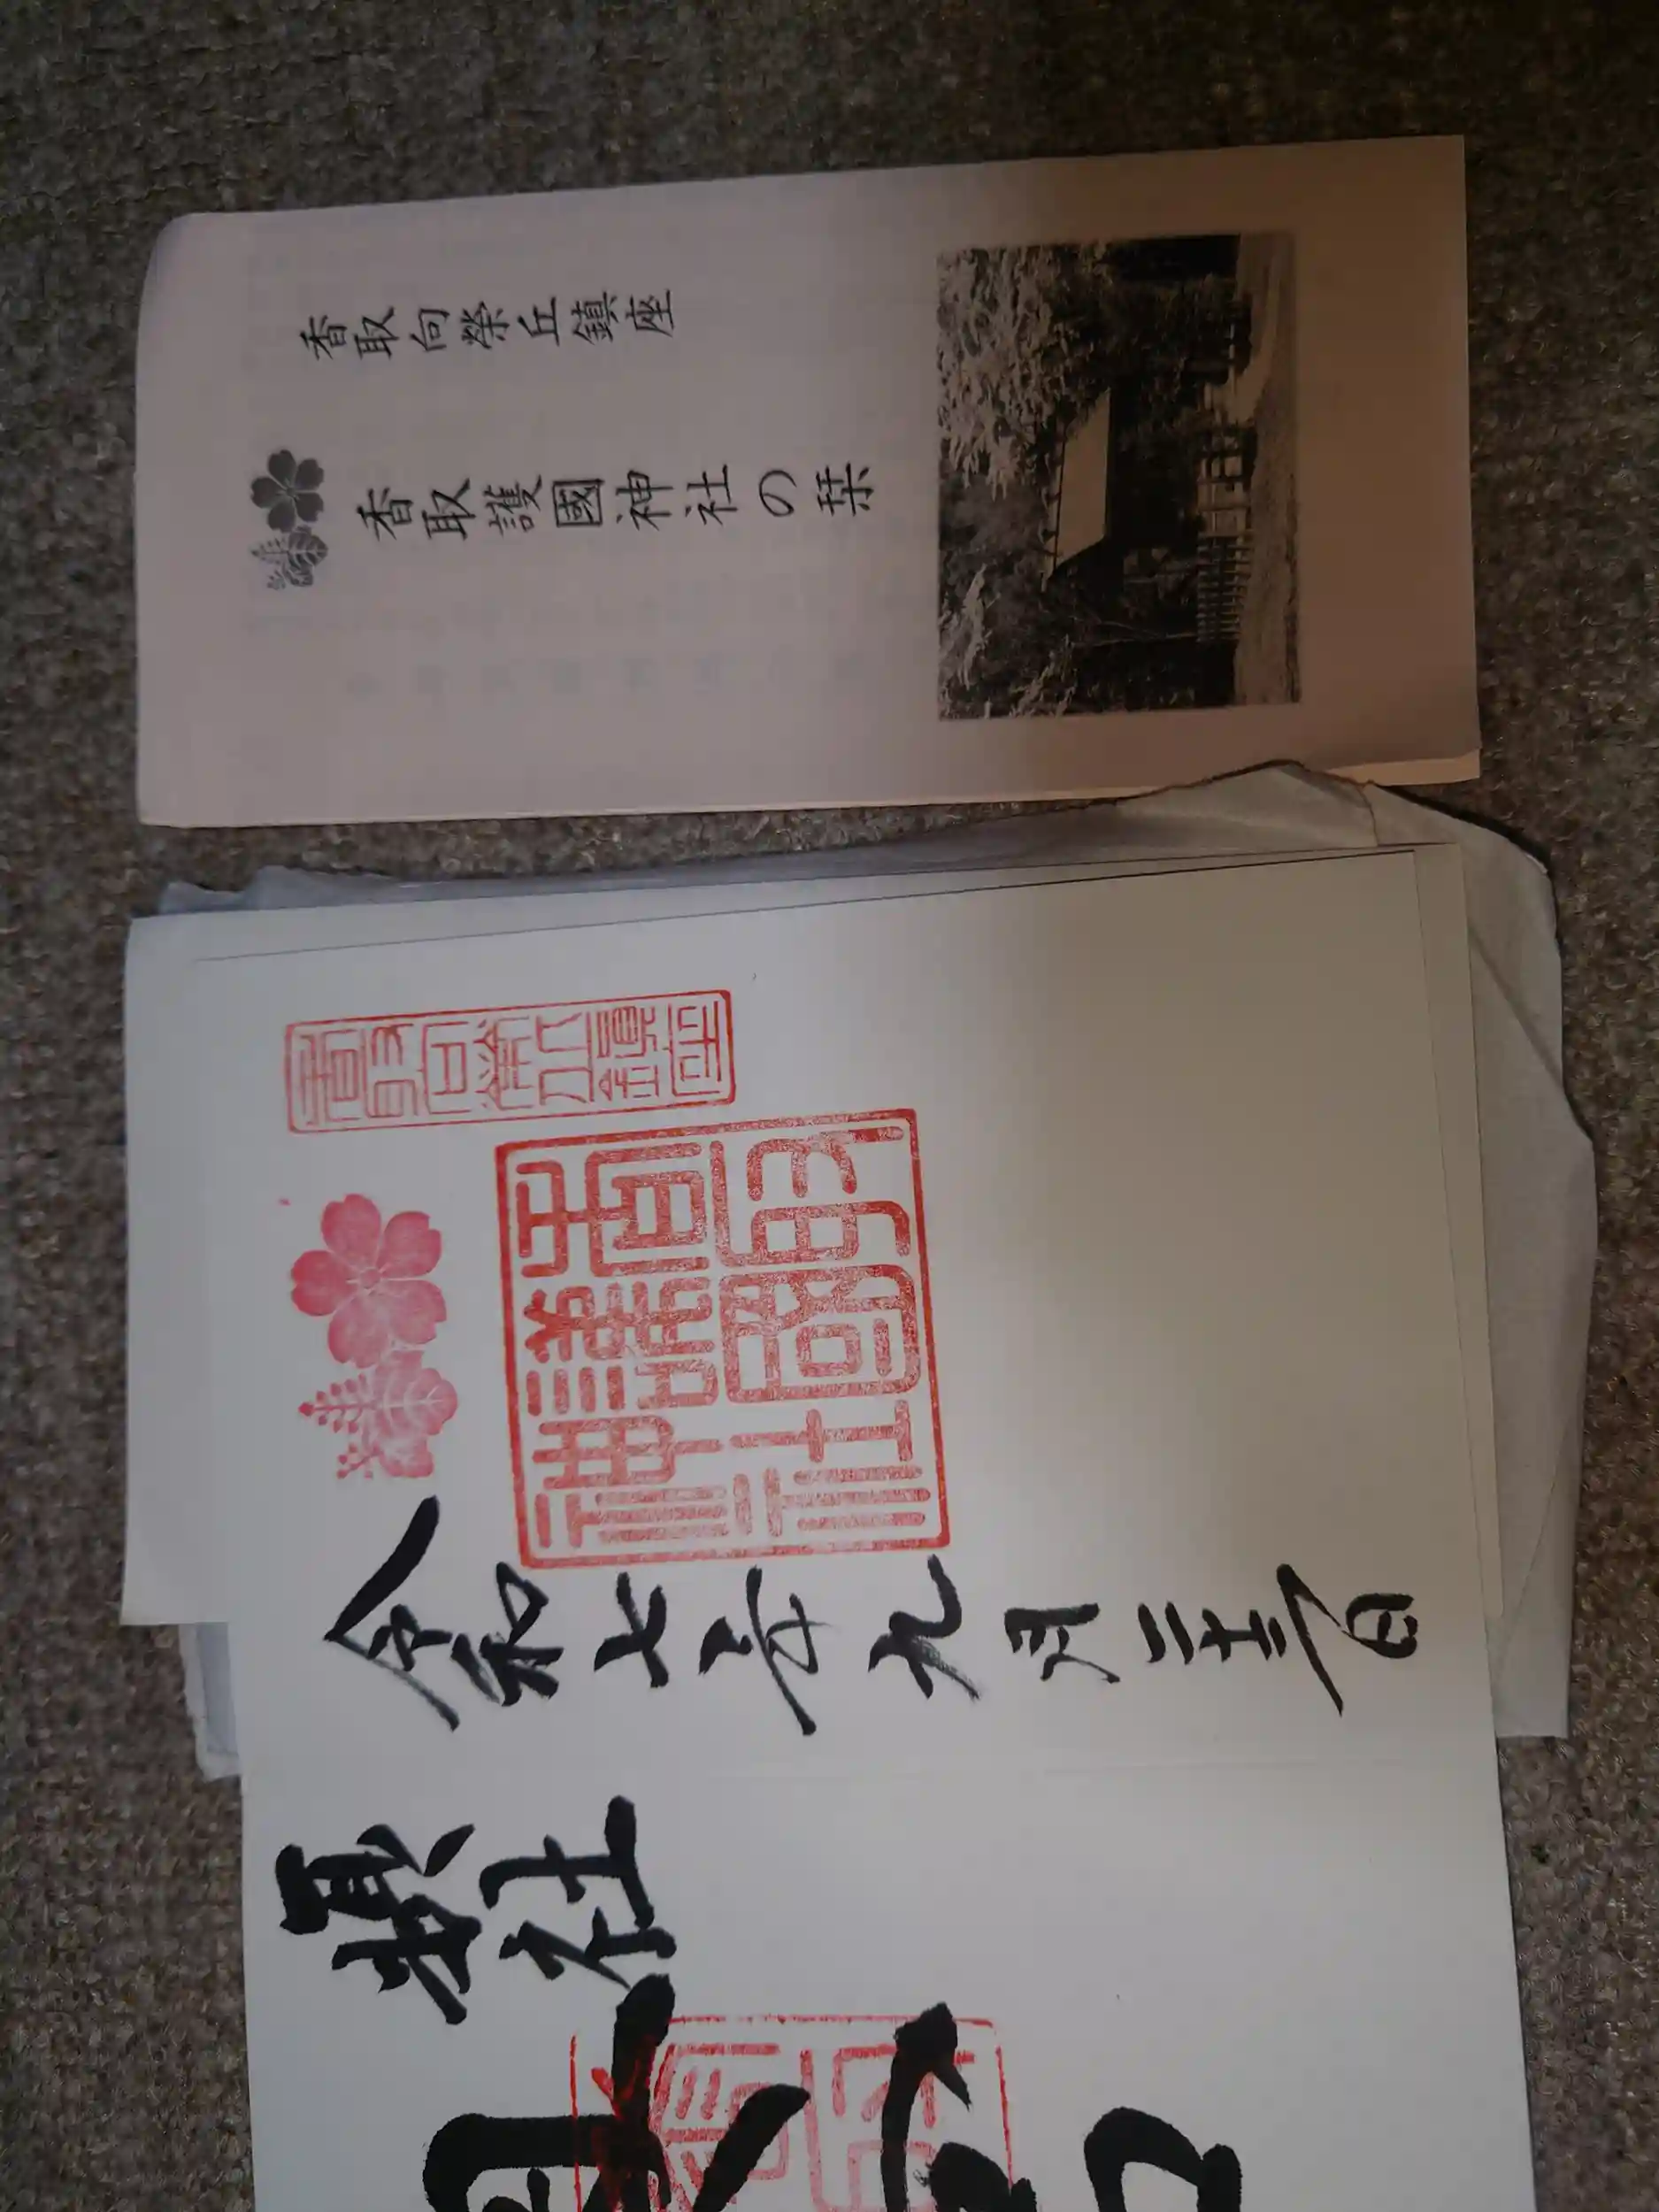 香取向榮丘鎮座
香取護國神社の栞
香取向榮丘鎮座
香取
護國
神社
令和七年九月二十三日
縣社